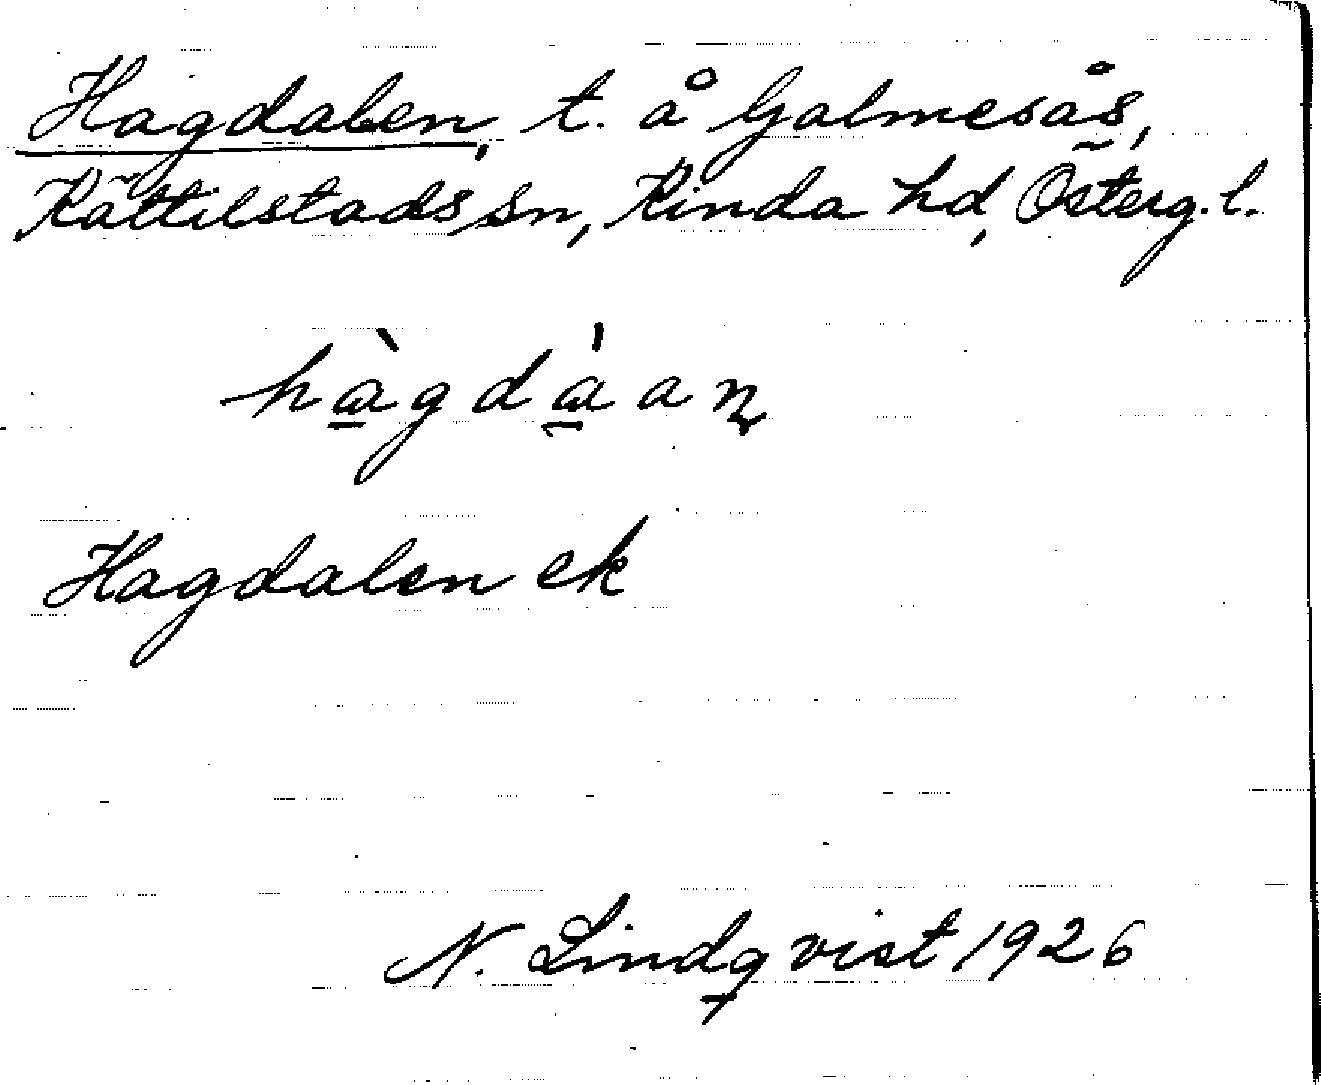 Hagdalen, t. å Galmesås,
Kättilstads sn, Kinda hd, Österg. l.
hàgdáan
Hagdalen ek
N. Lindqvist 1926